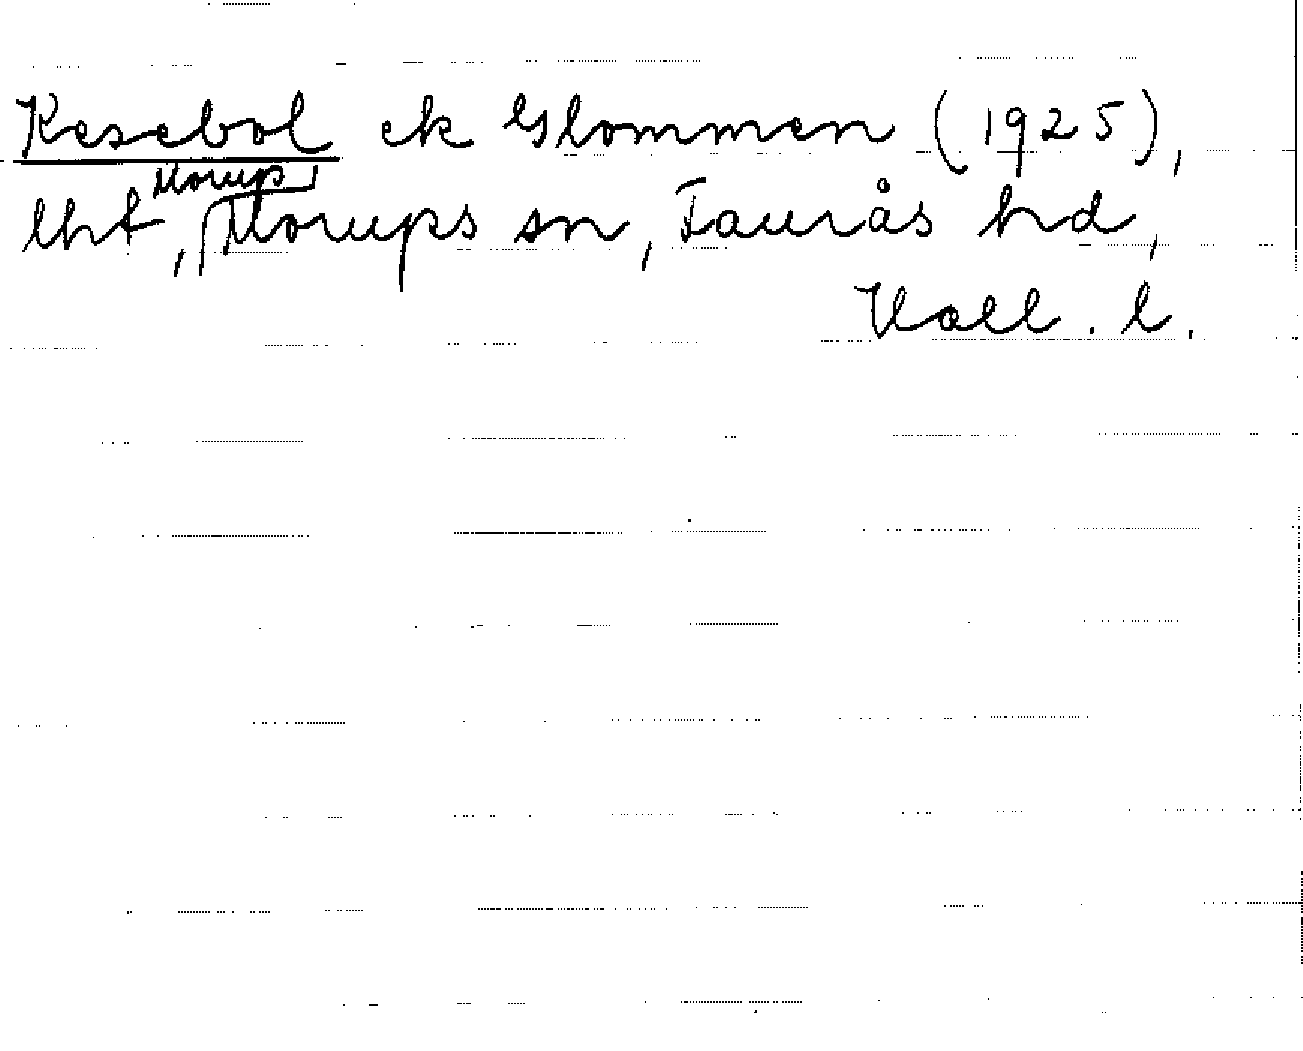 Kesebol ek Glommen (1925),
Morup
lht, Morups sn, Faurås hd,
Hall. l.